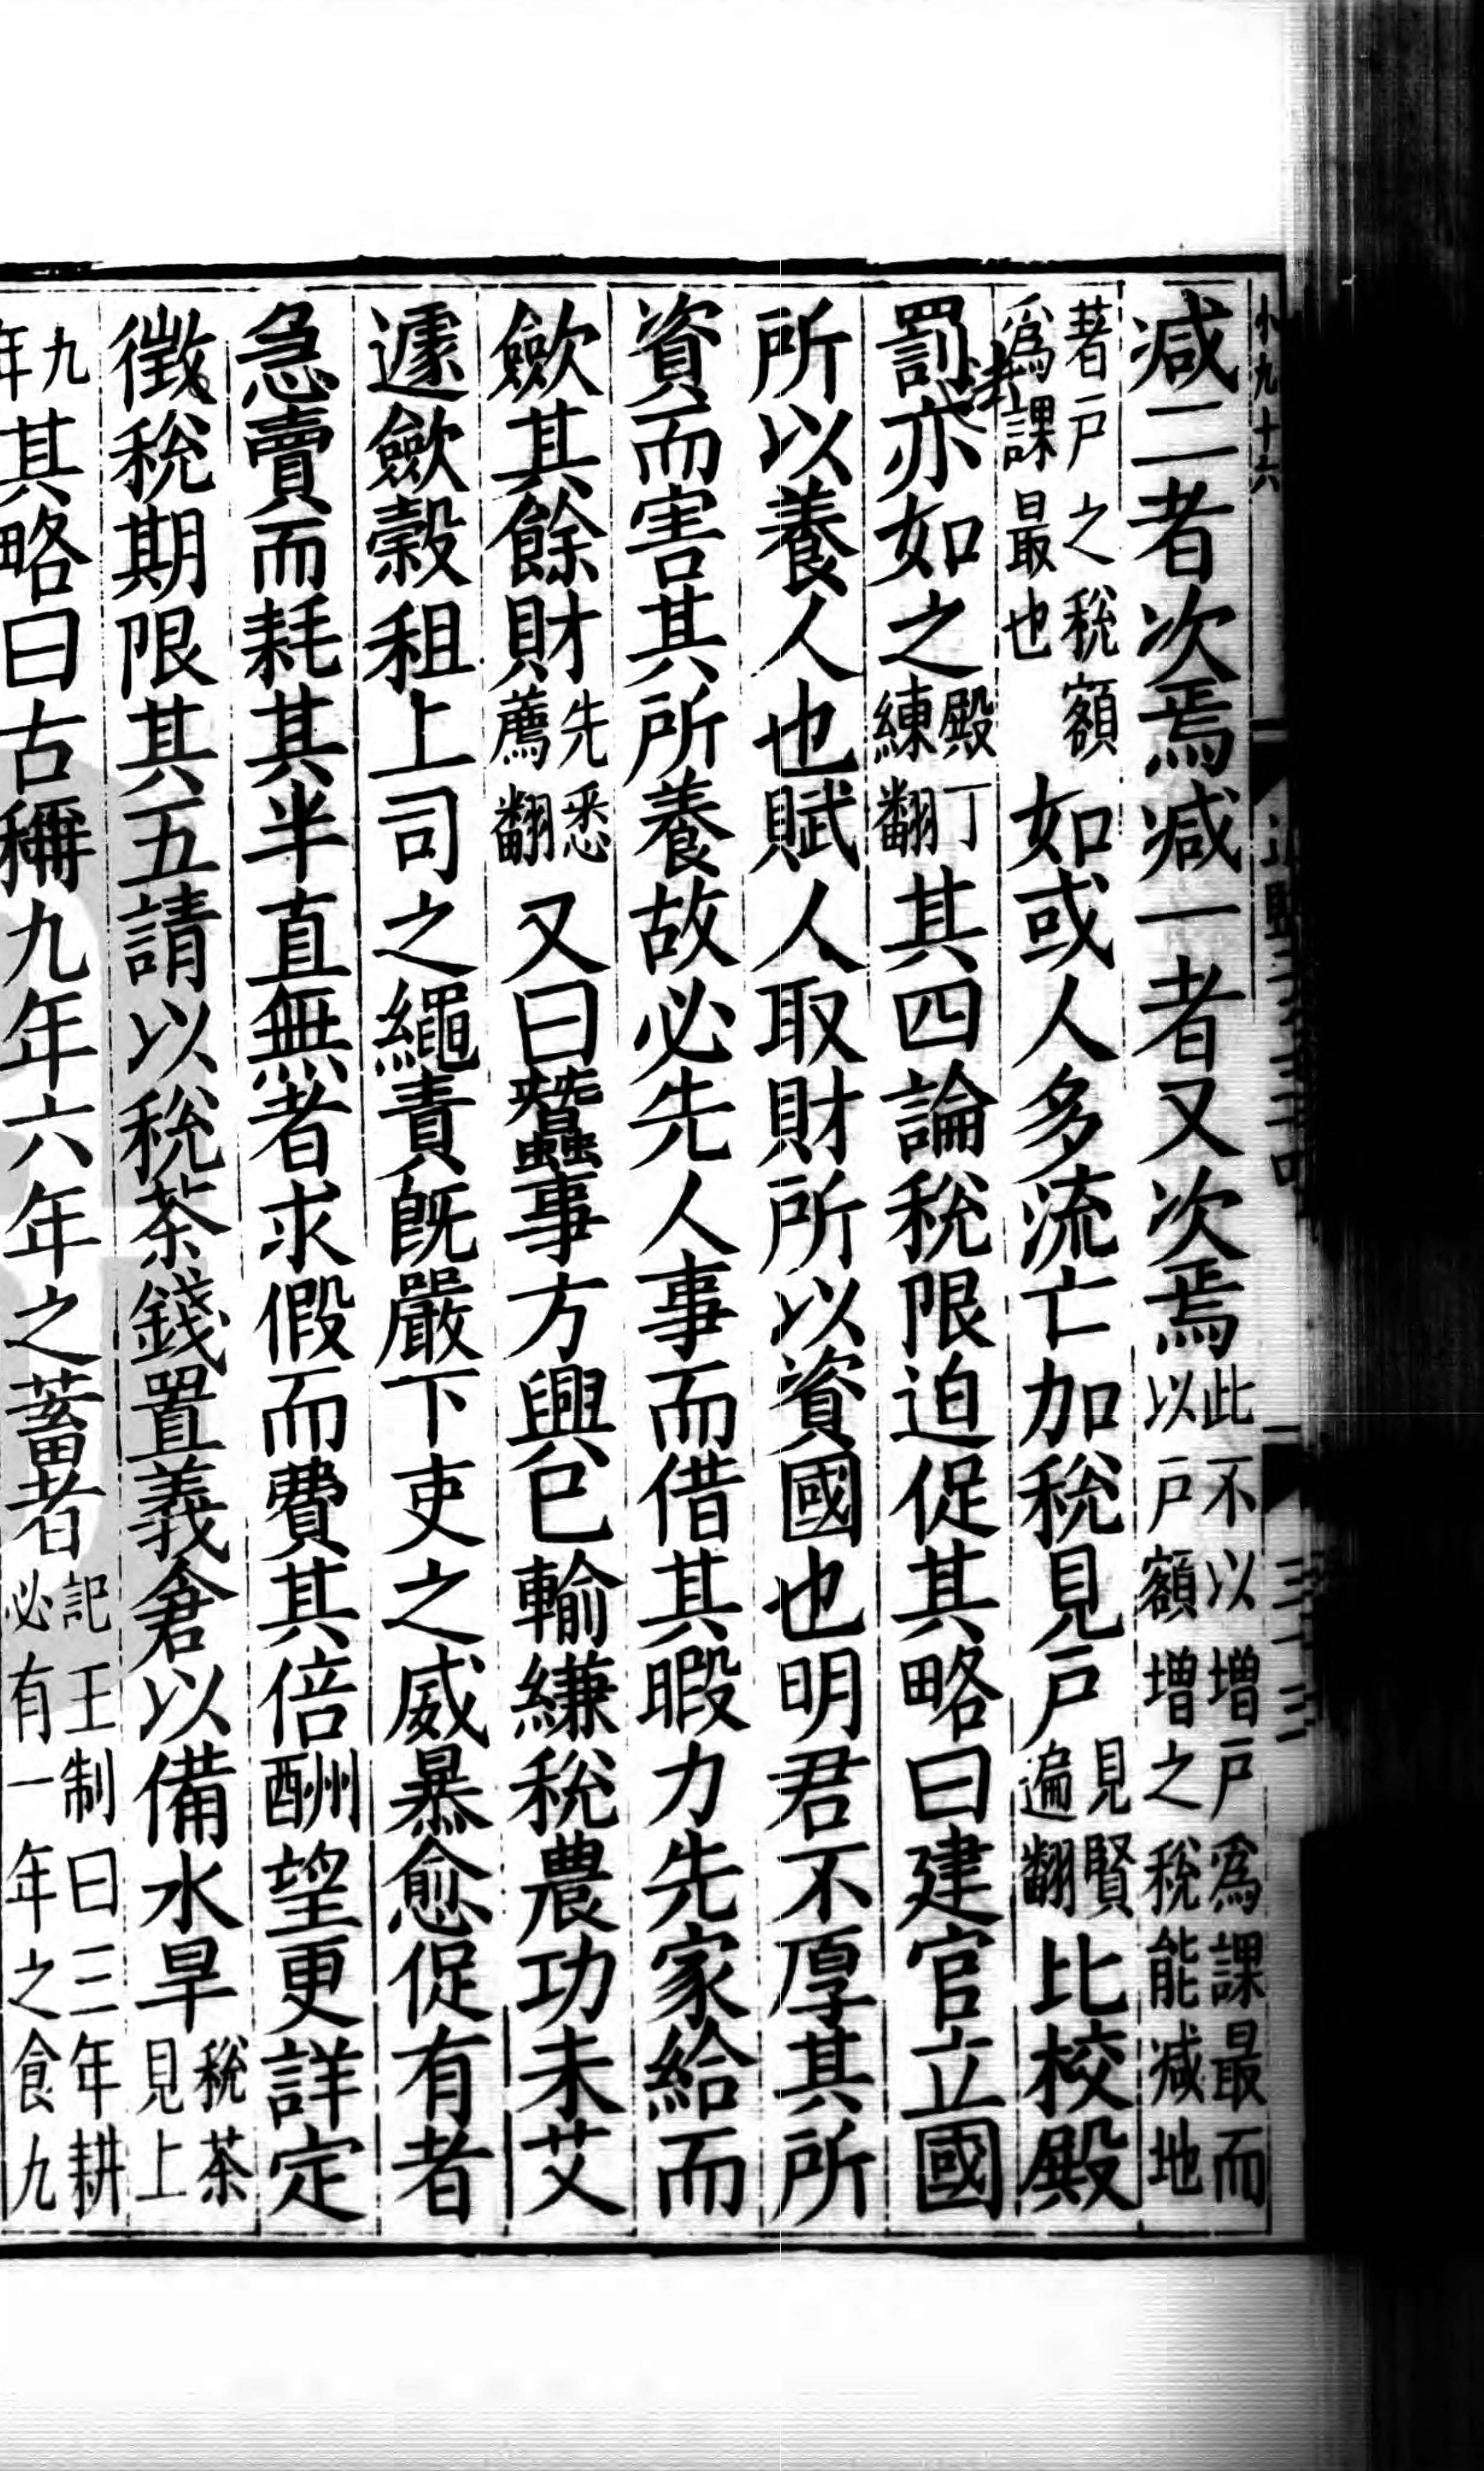 小九十六
减二者次焉减一者又次焉此不以增戶爲課最而以戶額增之稅能减地
著戶之稅額爲課最也如或人多流亡加稅見戶見賢遍翻比校殿
罰亦如之殿丁練翻其四論稅限迫促其略曰建官立國
所以養人也賦人取財所以資國也明君不厚其所
資而害其所養故必先人事而借其暇力先家給而
斂其餘財先悉薦翻又曰蠶事方興已輸縑稅農功未艾
遽斂穀租上司之繩責旣嚴下吏之威暴愈促有者
急賣而耗其半直無者求假而費其倍酬望更詳定
徵稅期限其五請以稅茶錢置義倉以備水旱稅茶見上
九年其略曰古稱九年六年之蓄者記王制曰三年耕必有一年之食九